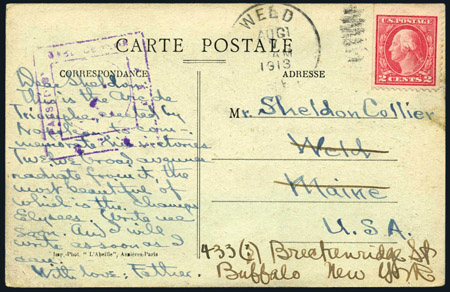 WELD
AUG 1
AM
1913
U.S. POSTAGE
2 CENTS 2
CARTE POSTALE
CORRESPONDANCE
ADRESSE
Dear Sheldon:
This is the Arc de
Triomphe, erected by
Napoleon to com-
memorate his victories.
Twelve broad avenues
radiate from it, the
most beautiful of
which is the Champs
Elysees. Write me
soon. And I will
write as soon as I
can.
With love, Father.
Mr. Sheldon Collier
Weld
Maine
U.S.A.
433(?) Breckenridge St
Buffalo New York
Imp.-Phot. "L'Abeille", Asnières-Paris